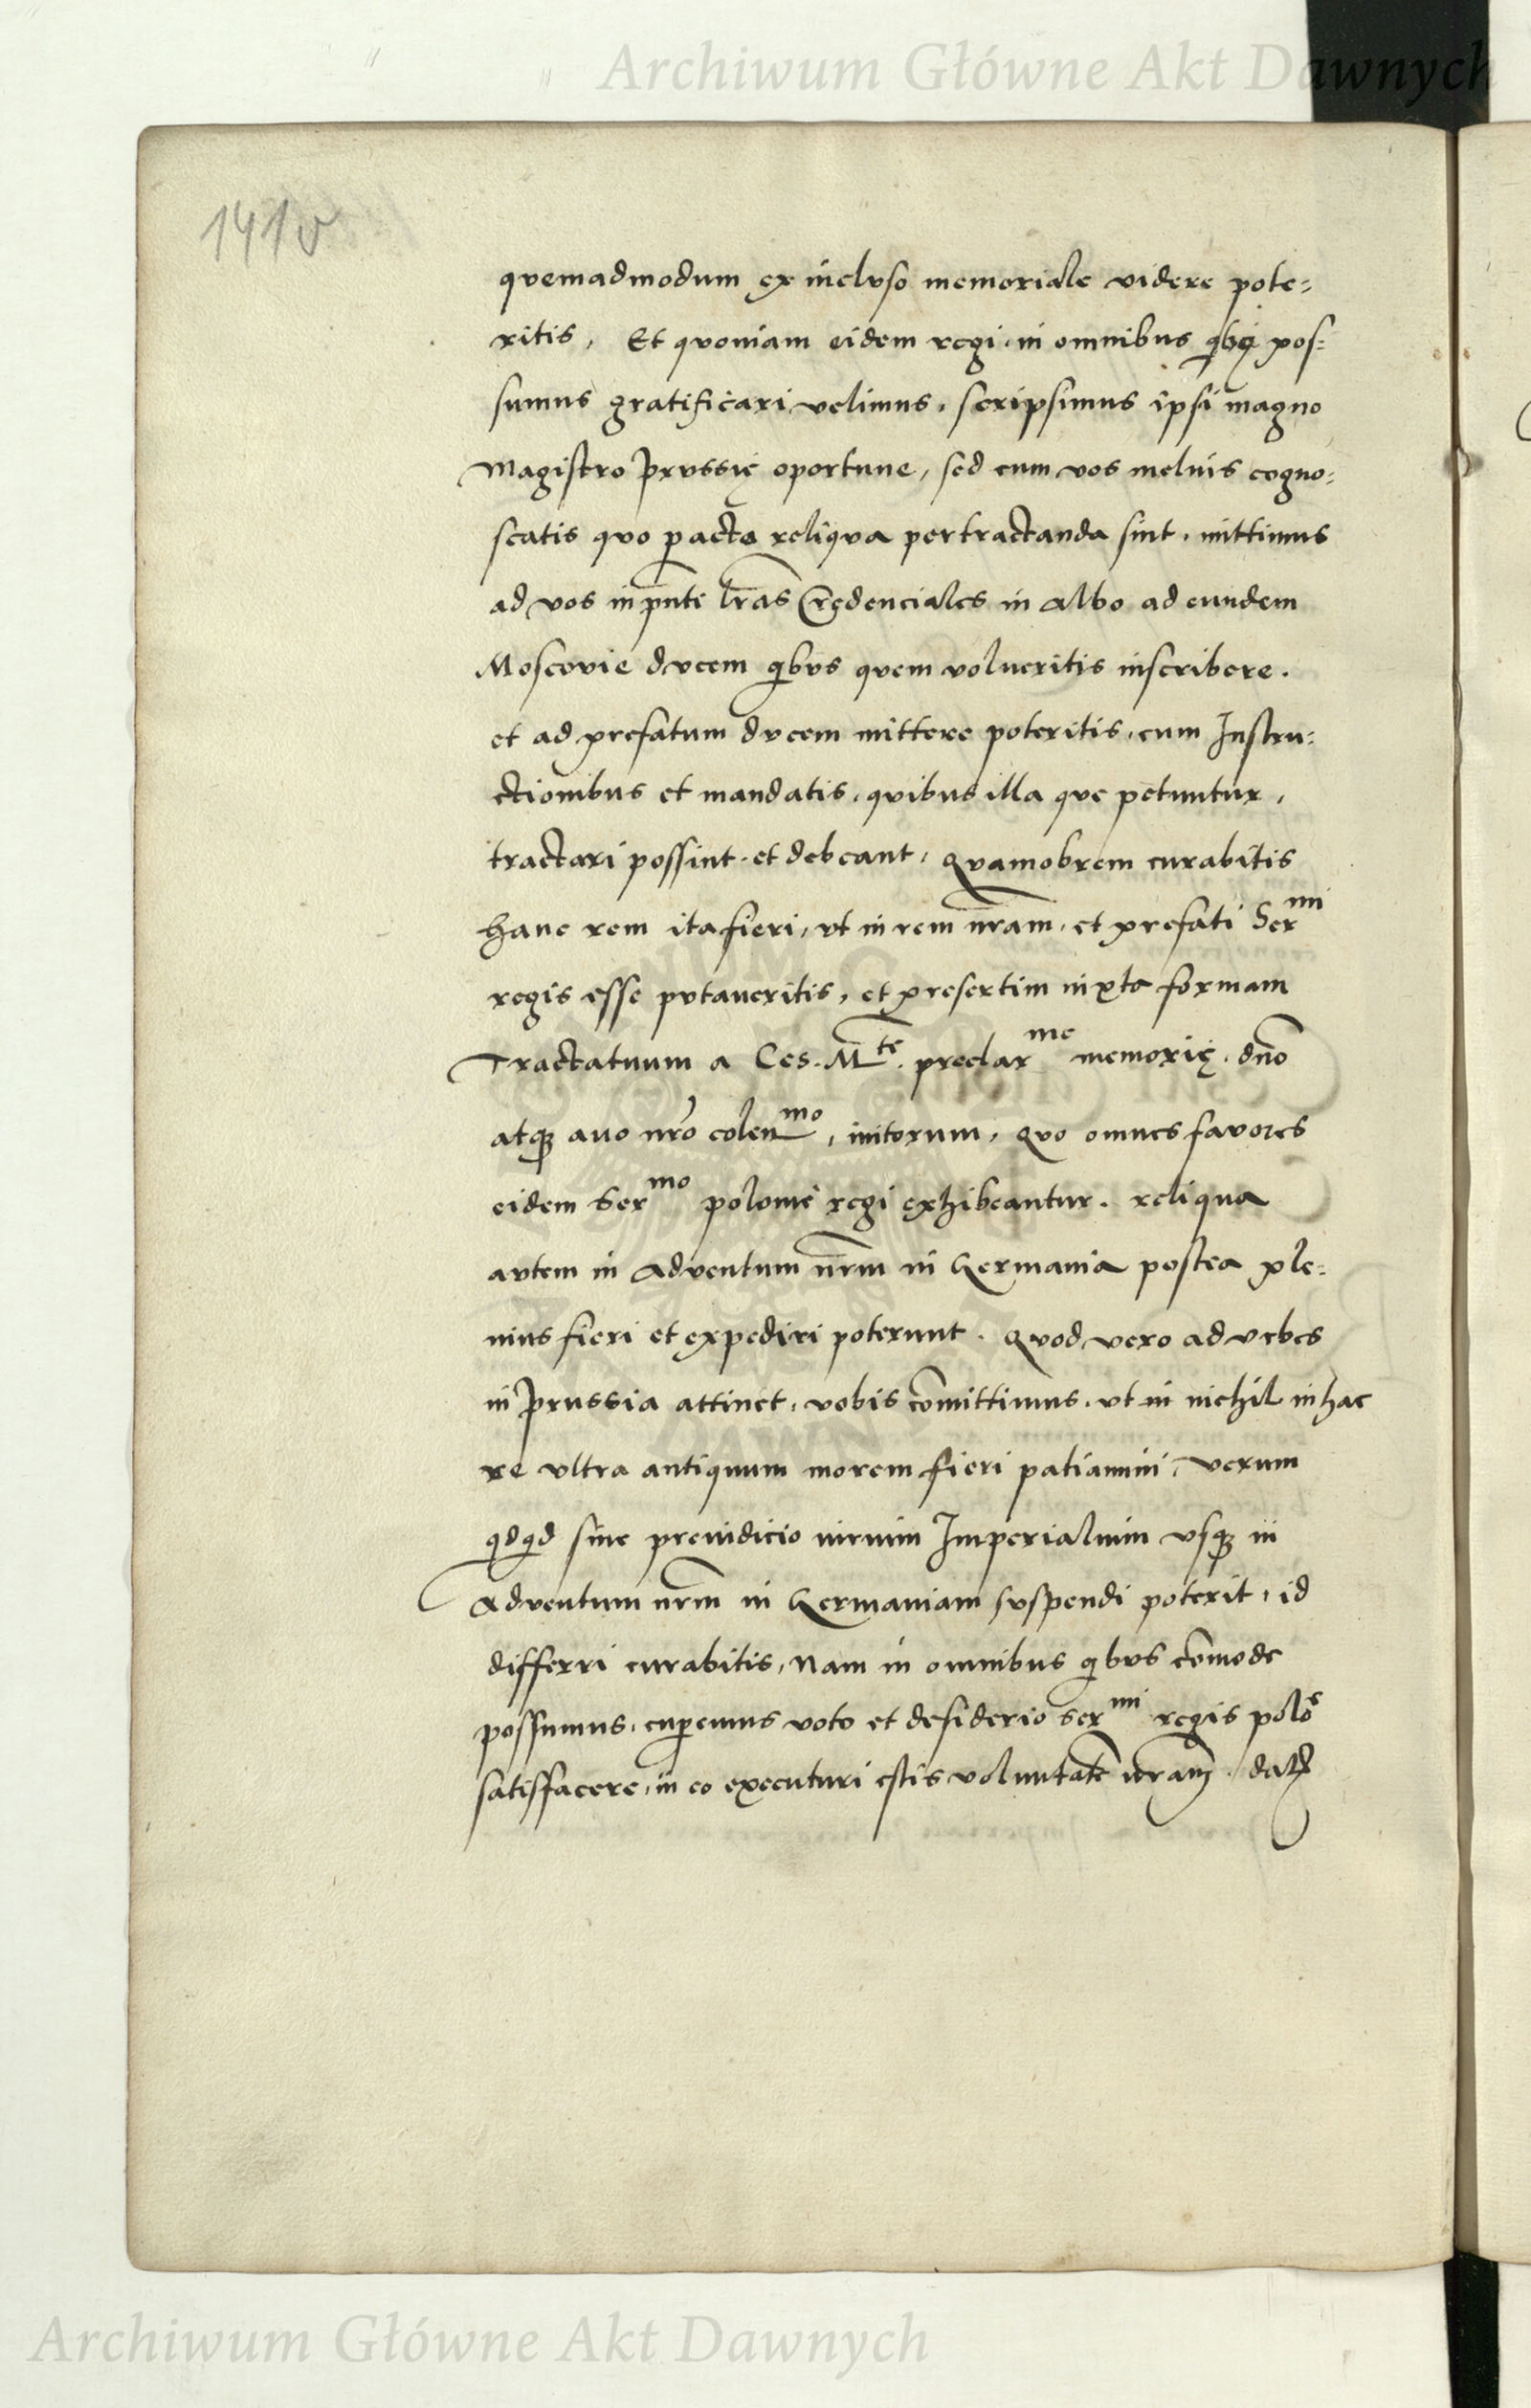 Archiwum Główne Akt Dawnych
141v
qvemadmodum ex inclvso memoriale videre pote=
ritis, Et qvoniam eidem regi in omnibus qbq pos=
sumus gratificari velimus, scripsimus ipsi magno
Magistro Prvssię oportune, sed cum vos melius cogno=
scatis qvo pacto reliqva pertractanda sint, mittimus
ad vos in pn̄ti lr̄as Credenciales in albo ad eundem
Moscovie dvcem qibvs qvem volueritis inscribere.
et ad prefatum dvcem mittere poteritis, cum Instru=
ctionibus et mandatis, qvibus illa qve petuntur,
tractari possint et debeant, qvamobrem curabitis
hanc rem ita fieri, vt in rem nr̄am, et prefati Ser^mi
regis esse pvtaueritis, et presertim iuxta formam
Tractatuum a Ces. M^te. preclar^me memorię, dn̄o
atq; auo nr̄o colen^mo, initorum, qvo omnes favores
eidem Ser^mo polonie regi exhibeantur. reliqua
avtem in adventum nr̄m in Germania postea ple=
nius fieri et expediri poterunt. qvod vero ad vrbes
in Prussia attinet, vobis com̄ittimus, vt in nichil in hac
re vltra antiquum morem fieri patiamini, verum
qdqd sine preiudicio iurium Imperialium vsq; in
adventum nr̄m in Germaniam svspendi poterit, id
differri curabitis, nam in omnibus qibvs com̄ode
possumus, cuperemus voto et desiderio ser^mi regis polo^e
satisfacere, in eo executuri estis voluntatē nr̄am. dat̄
Archiwum Główne Akt Dawnych